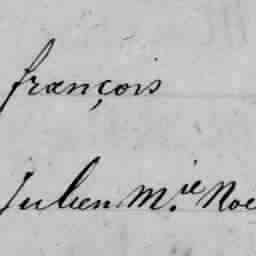 françois
Julien M.ie Noe